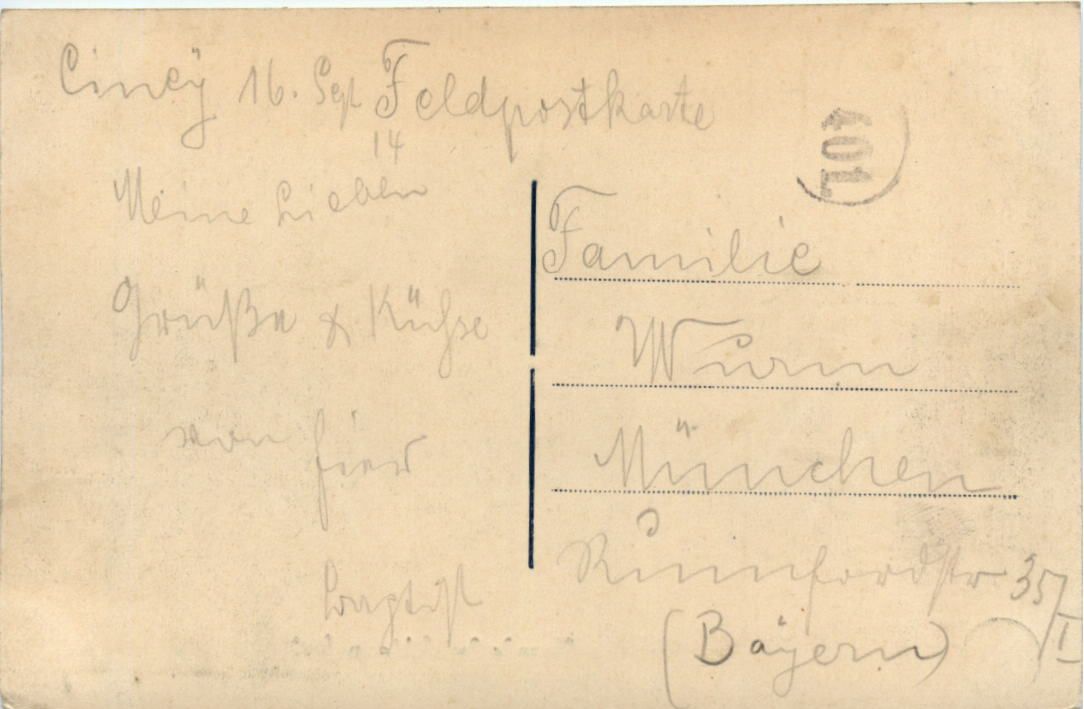 Cineÿ 16. Sept Feldpostkarte
14
Meine Lieben
Grüße & Küsse
von hier
Familie
Wurm
München
Rumfordstr 35/I
(Baÿern)